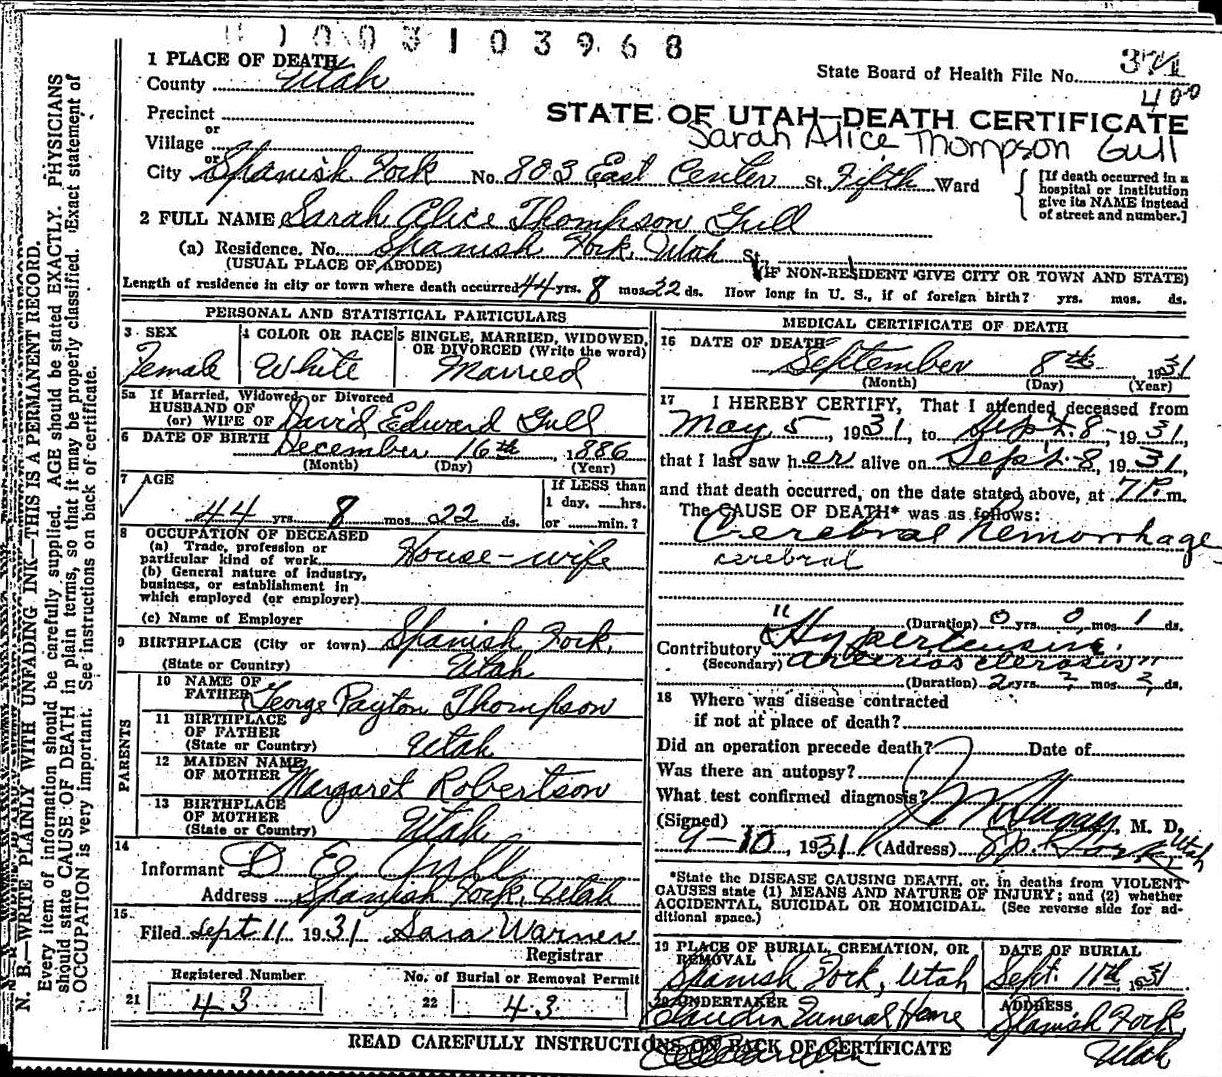 0 0 3 1 0 3 9 6 8
1 PLACE OF DEATH
County Utah
State Board of Health File No. 371
400
Precinct
or
Village
STATE OF UTAH—DEATH CERTIFICATE
Sarah Alice Thompson Gull
or
City Spanish Fork No. 803 East Center St. Fifth Ward
[If death occurred in a hospital or institution give its NAME instead of street and number.]
2 FULL NAME Sarah Alice Thompson Gull
(a) Residence. No. Spanish Fork, Utah St.
(USUAL PLACE OF ABODE) (IF NON-RESIDENT GIVE CITY OR TOWN AND STATE)
Length of residence in city or town where death occurred 44 yrs. 8 mos. 22 ds. How long in U. S., if of foreign birth? yrs. mos. ds.
PERSONAL AND STATISTICAL PARTICULARS
3 SEX
Female
4 COLOR OR RACE
White
5 SINGLE, MARRIED, WIDOWED, OR DIVORCED (Write the word)
Married
5a If Married, Widowed, or Divorced
HUSBAND OF
(or) WIFE OF David Edward Gull
6 DATE OF BIRTH
December 16th, 1886
(Month) (Day) (Year)
7 AGE
44 yrs. 8 mos. 22 ds.
If LESS than
1 day, hrs.
or min.?
8 OCCUPATION OF DECEASED
(a) Trade, profession or
particular kind of work House-wife
(b) General nature of industry,
business, or establishment in
which employed (or employer)
(c) Name of Employer
9 BIRTHPLACE (City or town) Spanish Fork,
(State or Country) Utah
PARENTS
10 NAME OF
FATHER George Payton Thompson
11 BIRTHPLACE
OF FATHER
(State or Country) Utah
12 MAIDEN NAME
OF MOTHER Margaret Robertson
13 BIRTHPLACE
OF MOTHER
(State or Country) Utah
14
Informant D E Gull
Address Spanish Fork, Utah
15
Filed Sept 11 1931 Sara Warner
Registrar
Registered Number
21 43
No. of Burial or Removal Permit
22 43
MEDICAL CERTIFICATE OF DEATH
16 DATE OF DEATH
September 8th, 1931
(Month) (Day) (Year)
17 I HEREBY CERTIFY, That I attended deceased from
May 5, 1931, to Sept. 8, 1931,
that I last saw her alive on Sept. 8, 1931,
and that death occurred, on the date stated above, at 7 P. m.
The CAUSE OF DEATH* was as follows:
Cerebral Hemorrhage
cerebral
(Duration) 0 yrs. 0 mos. 1 ds.
Contributory "Hypertension
(Secondary) arteriosclerosis"
(Duration) 2 yrs. ? mos. ? ds.
18 Where was disease contracted
if not at place of death?
Did an operation precede death? Date of
Was there an autopsy?
What test confirmed diagnosis?
(Signed) M. D.
9-10, 1931 (Address) Sp. Fork, Utah
*State the DISEASE CAUSING DEATH, or, in deaths from VIOLENT
CAUSES state (1) MEANS AND NATURE OF INJURY; and (2) whether
ACCIDENTAL, SUICIDAL OR HOMICIDAL. (See reverse side for additional space.)
19 PLACE OF BURIAL, CREMATION, OR REMOVAL
Spanish Fork, Utah
DATE OF BURIAL
Sept. 11th, 1931
20 UNDERTAKER
Claudin Funeral Home
ADDRESS
Spanish Fork,
Utah
READ CAREFULLY INSTRUCTIONS ON BACK OF CERTIFICATE
N. B.—WRITE PLAINLY WITH UNFADING INK—THIS IS A PERMANENT RECORD.
Every item of information should be carefully supplied. AGE should be stated EXACTLY. PHYSICIANS
should state CAUSE OF DEATH in plain terms, so that it may be properly classified. Exact statement of
OCCUPATION is very important. See instructions on back of certificate.